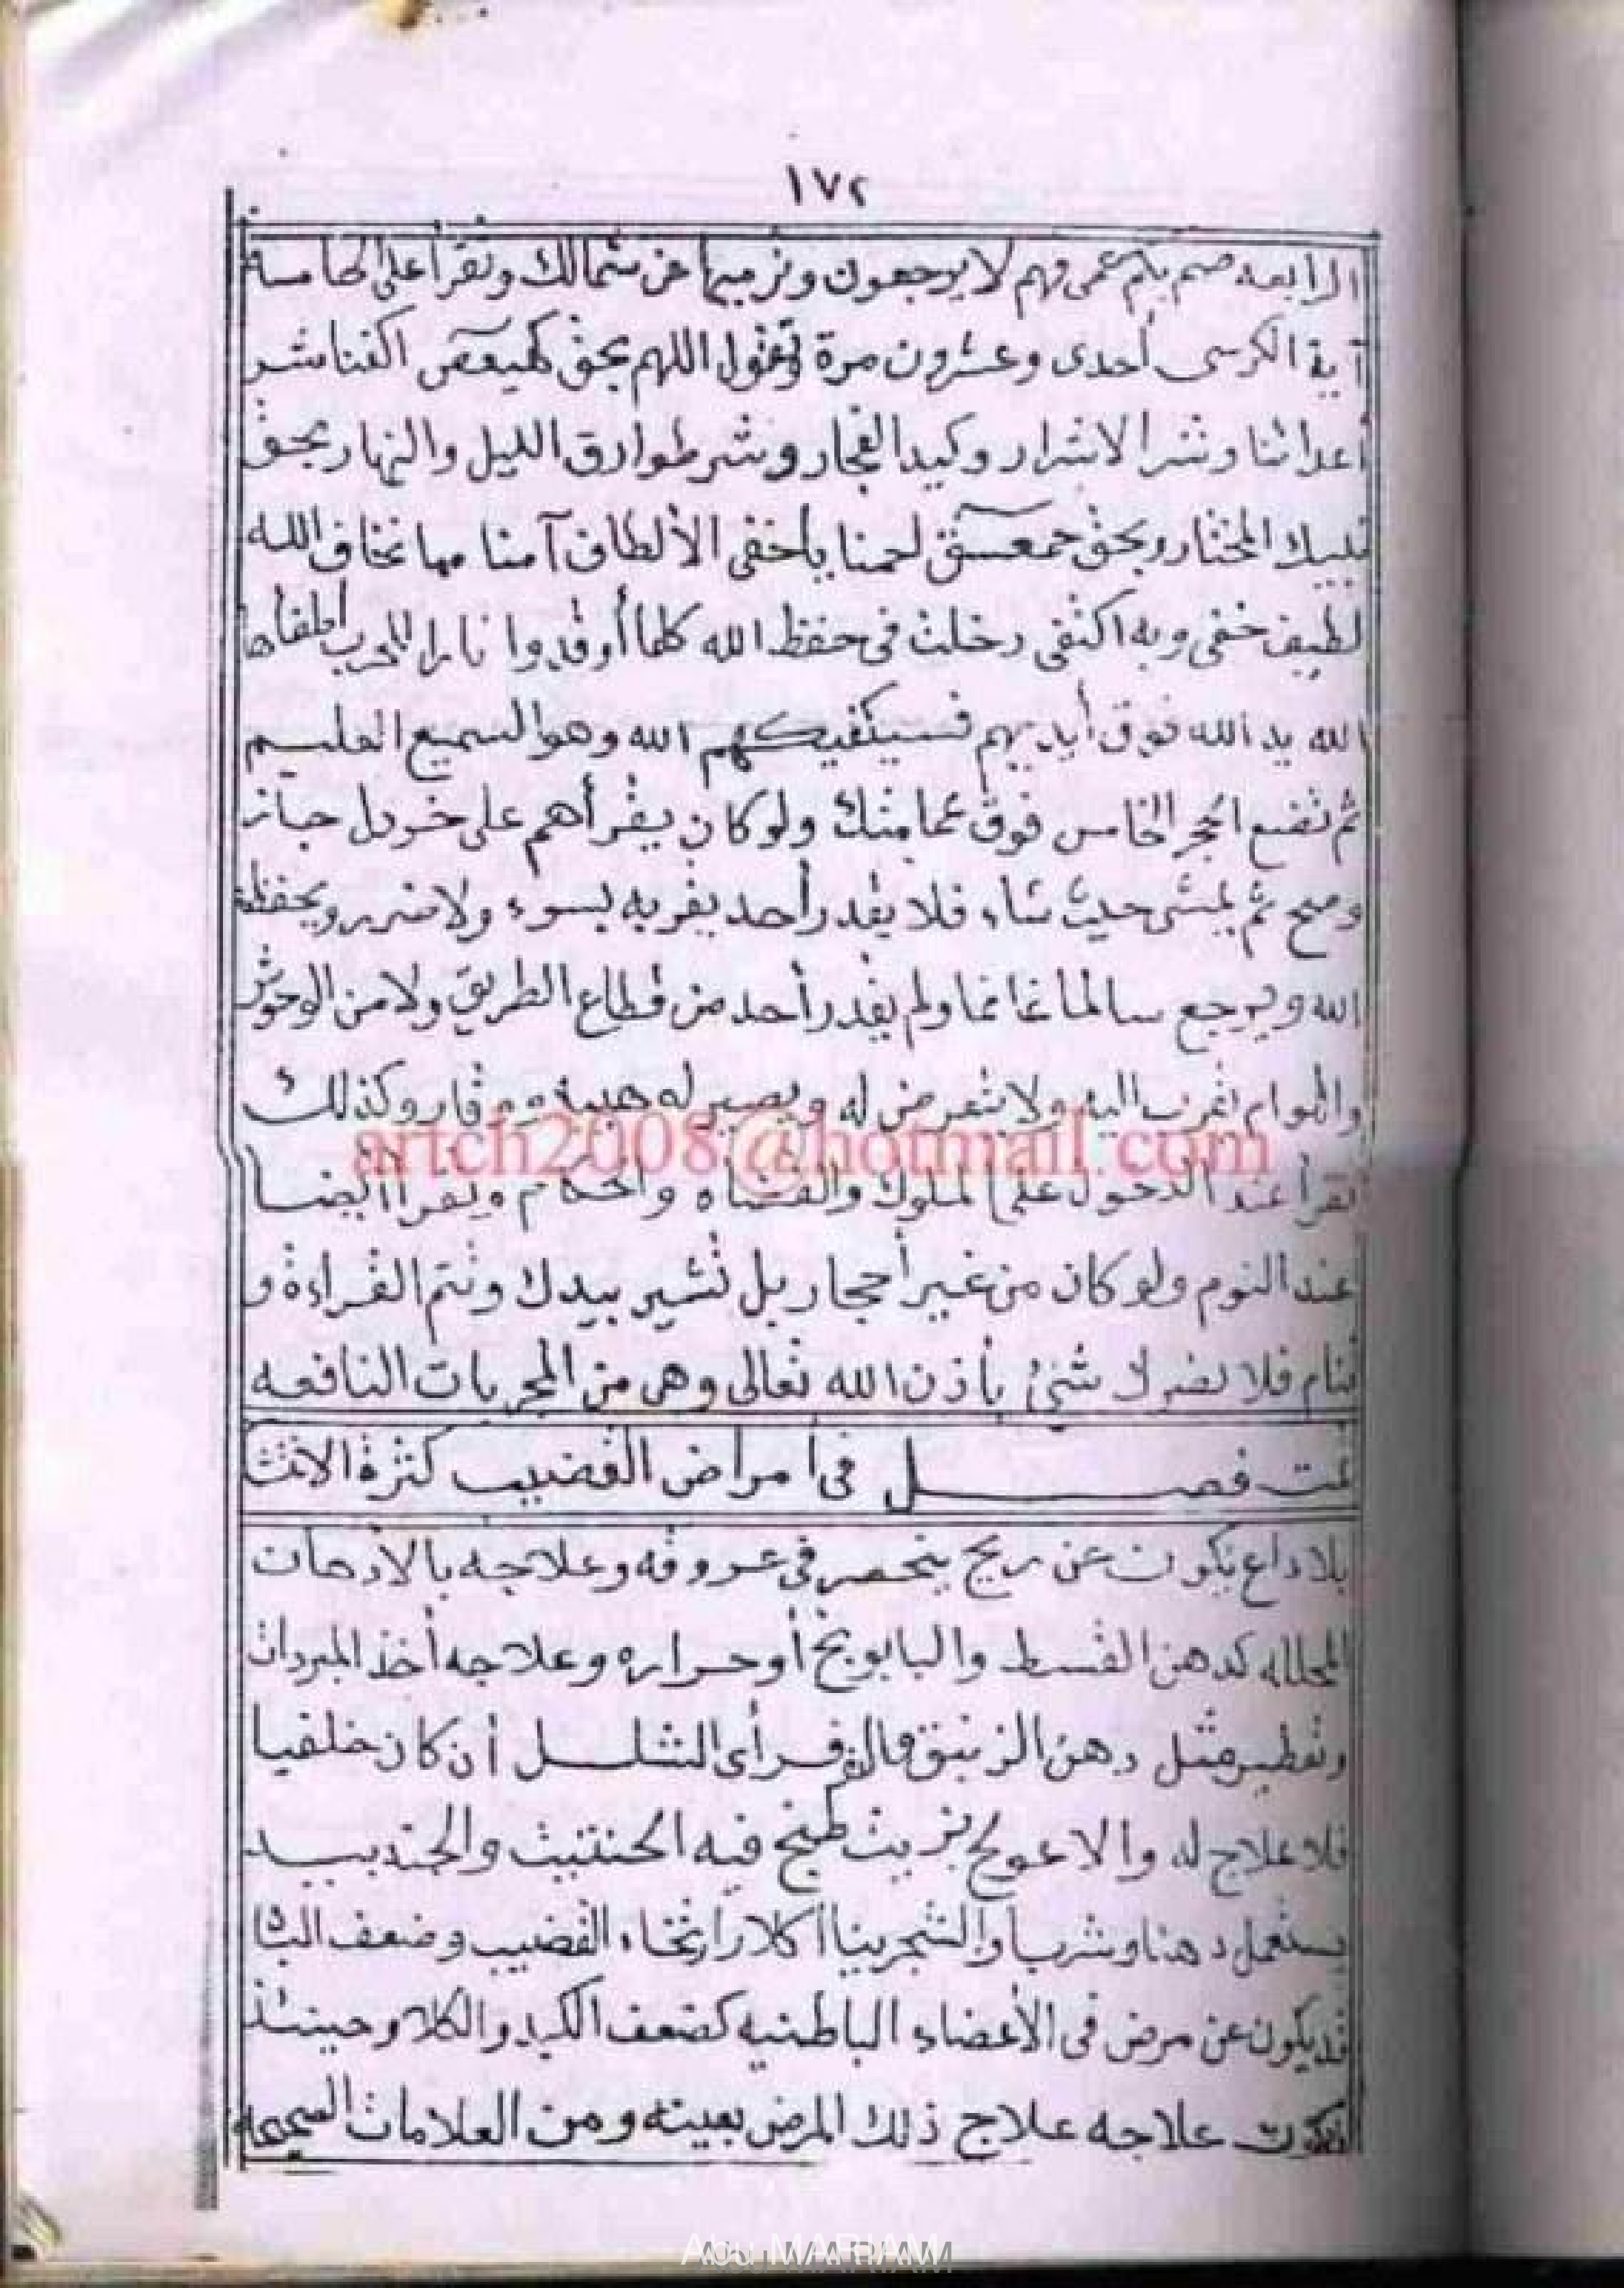 ١٧٢
الرابعه صم بكم عمى فهم لا يرجعون وترميها عن شمالك وتقرأ على الخامسة
آية الكرسى أحدى وعشرون مرة وتقول اللهم بحق كهيعص اكفنا شر
أعدائنا وشر الاشرار وكيد الفجار وشر طوارق الليل والنهار بحق
نبيك المختار وبحق حمعسق احمنا يا خفى الألطاف آمنا مما نخاف الله
لطيف خفى وبه اكتفى دخلت فى حفظ الله كلما أوقدوا نارا للحرب أطفاها
الله يد الله فوق أيديهم فسيكفيكهم الله وهو السميع العليم
ثم تضع الحجر الخامس فوق عمامتك ولو كان يقرأهم على خردل جاز
وصح ثم يمشى حيث شاء فلا يقدر أحد يقربه بسوء ولا ضرر ويحفظه
الله ويرجع سالما غانما ولم يقدر أحد من قطاع الطريق ولا من الوحوش
والهوام تقرب اليه ولا يتعرض له ويصير له هيبة ووقار وكذلك
تقرأ عند الدخول على الملوك والقضاه والحكام ويقرأ ايضا
عند النوم ولو كان من غير أحجار بل تشير بيدك وتتم القراءة و
تنام فلا يضرك شئ بأذن الله تعالى وهى من المجربات النافعه
تمت فصل فى أمراض القضيب كثرة الانتشا
بلا داع يكون عن ريح ينحصر فى عروقه وعلاجه بالادهان
المحلله كدهن القسط والبابونج أو حراره وعلاجه أخذ المبردات
وتقطير مثل دهن الزنبق أى الشلل أن كان خلقيا
فلا علاج له والا عولج بزيت طبخ فيه الحنتيت والجندبيد
يستعمل دهنا وشربا والشجرينا أكلا رأرتخاء القضيب وضعف البا
قد يكون عن مرض فى الأعضاء الباطنيه كضعف الكبد والكلا وحينئذ
يكون علاجه علاج ذلك المرض بعينه ومن العلامات الصحيحه
artch2008@hotmail.com
Abu MARIAM